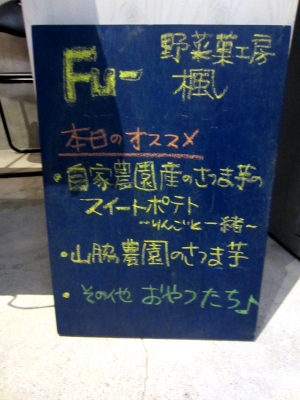 Fu-
野菜菓工房
楓
本日のオススメ
・自家農園産のさつま芋の
スイートポテト
～りんごと一緒～
・山脇農園のさつま芋
・その他 おやつたち♪